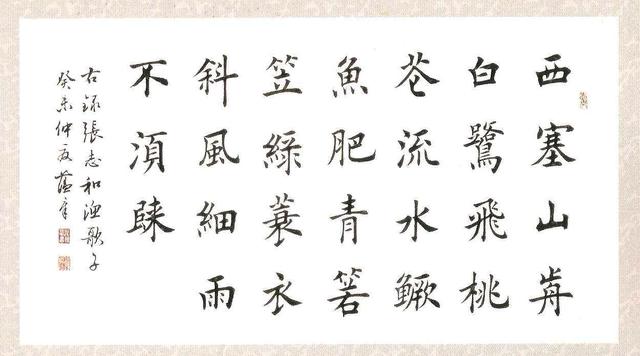 西塞山歬
白鷺飛桃
花流水鱖
魚肥青箬
笠綠蓑衣
斜風細雨
不湏歸
右錄張志和漁歌子
癸未仲夏